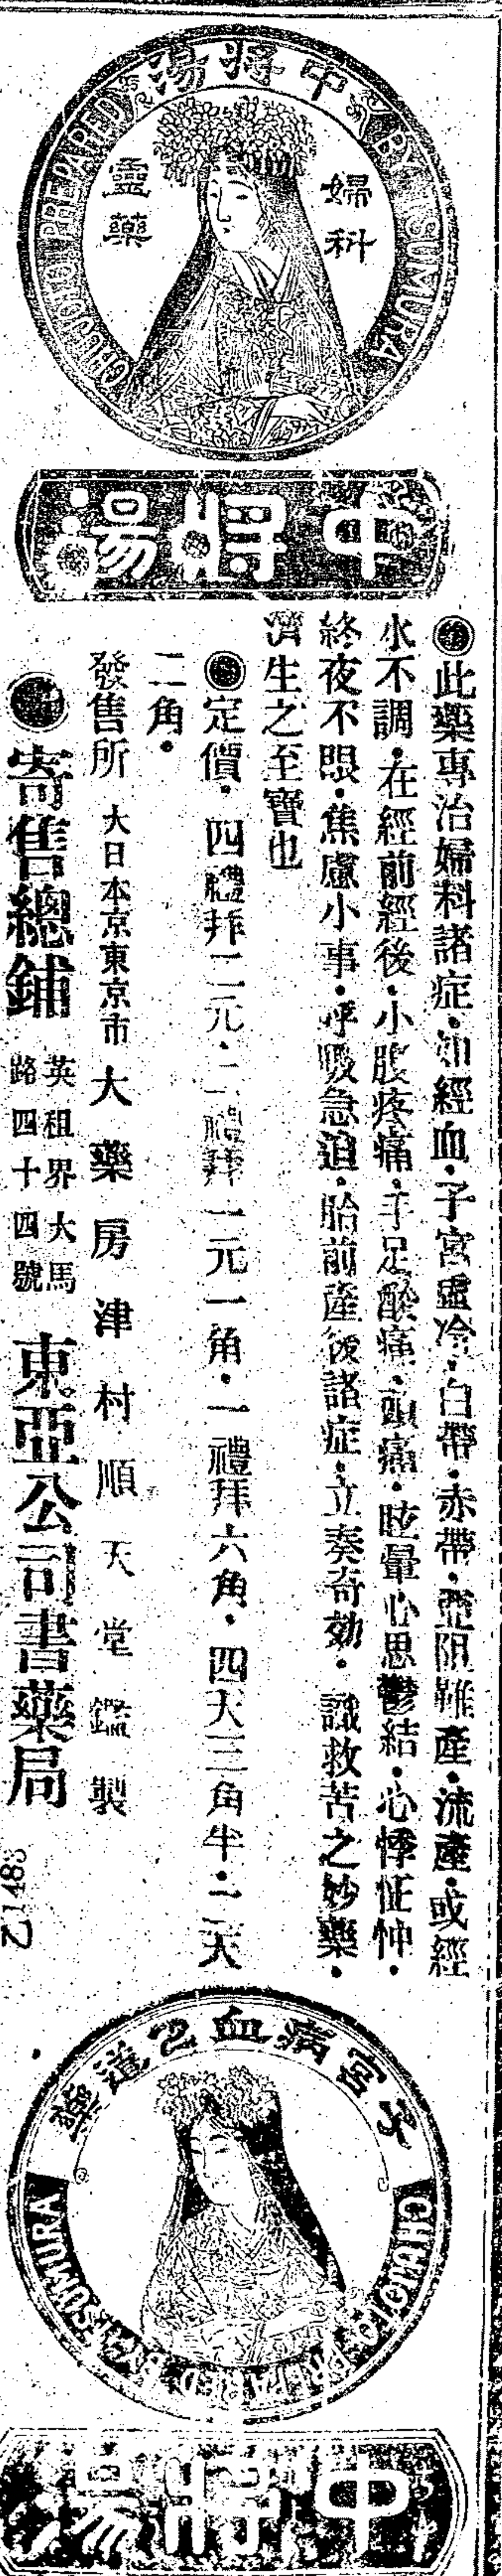 中將湯
婦科
靈藥
CHUJOTO PREPARED BY TSUMURA
中將湯
此藥專治婦科諸症·如經血·子宮虛冷·白帶·赤帶·惡阻難產·流產·或經
水不調·在經前經後·小腹疼痛·手足酸痛·頭痛·眩暈心思鬱結·心悸怔忡·
終夜不眠·焦慮小事·呼吸急迫·胎前產後諸症·立奏奇効·誠救苦之妙藥·
濟生之至寶也
定價·四禮拜二元·二禮拜一元一角·一禮拜六角·四天三角半·二天
二角·
發售所 大日本京東京市 大藥房津村順天堂鑑製
寄售總鋪 英租界大馬路四十四號 東亞公司書藥局
乙1483
子宮病血之道藥
CHUJOTO PREPARED BY TSUMURA
中將湯